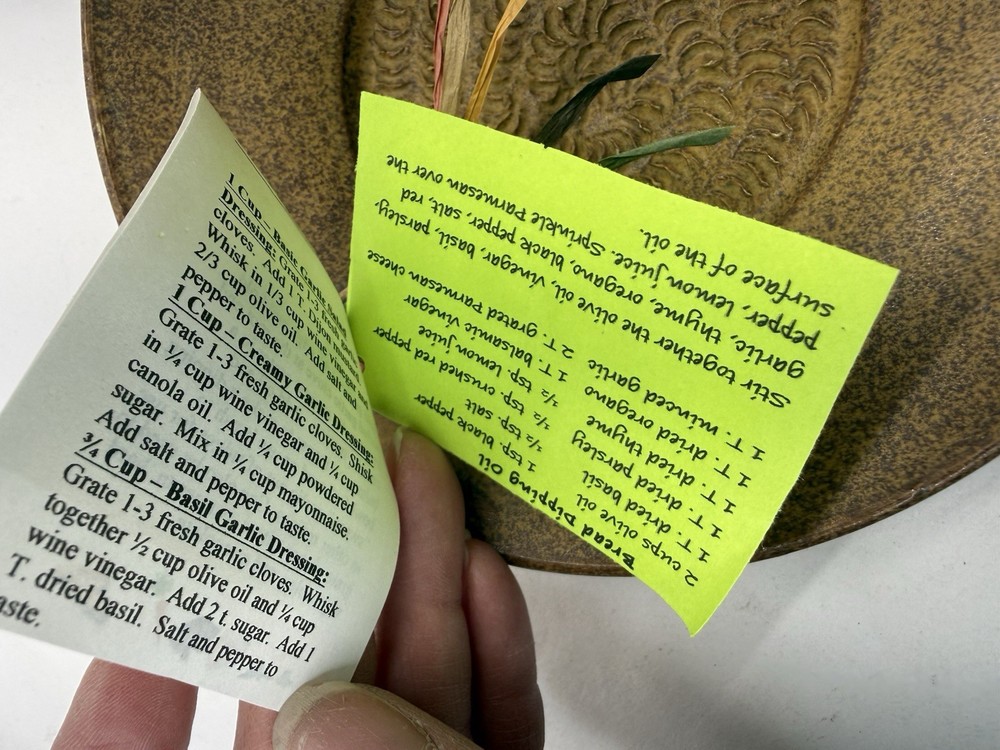 1 Cup – Basic Garlic
Dressing: Grate 1-3 fresh
cloves. Add 1 T. Dijon
Whisk in 1/3 cup wine vinegar and
2/3 cup olive oil. Add salt and
pepper to taste.
1 Cup – Creamy Garlic Dressing:
Grate 1-3 fresh garlic cloves. Shisk
in ¼ cup wine vinegar and ¼ cup
canola oil. Add ¼ cup powdered
sugar. Mix in ¼ cup mayonnaise.
Add salt and pepper to taste.
¾ Cup – Basil Garlic Dressing:
Grate 1-3 fresh garlic cloves. Whisk
together ½ cup olive oil and ¼ cup
wine vinegar. Add 2 t. sugar. Add 1
T. dried basil. Salt and pepper to
aste.
Bread Dipping Oil
2 cups olive oil 1 tsp black pepper
1 T. dried basil ½ tsp. salt
1 T. dried parsley ½ tsp. crushed red pepper
1 T. dried thyme ½ tsp. lemon juice
1 T. dried oregano 1 T. balsamic vinegar
1 T. minced garlic 2 T. grated Parmesan cheese
Stir together the olive oil, vinegar, basil, parsley,
garlic, thyme, oregano, black pepper, salt, red
pepper, lemon juice. Sprinkle Parmesan over the
surface of the oil.